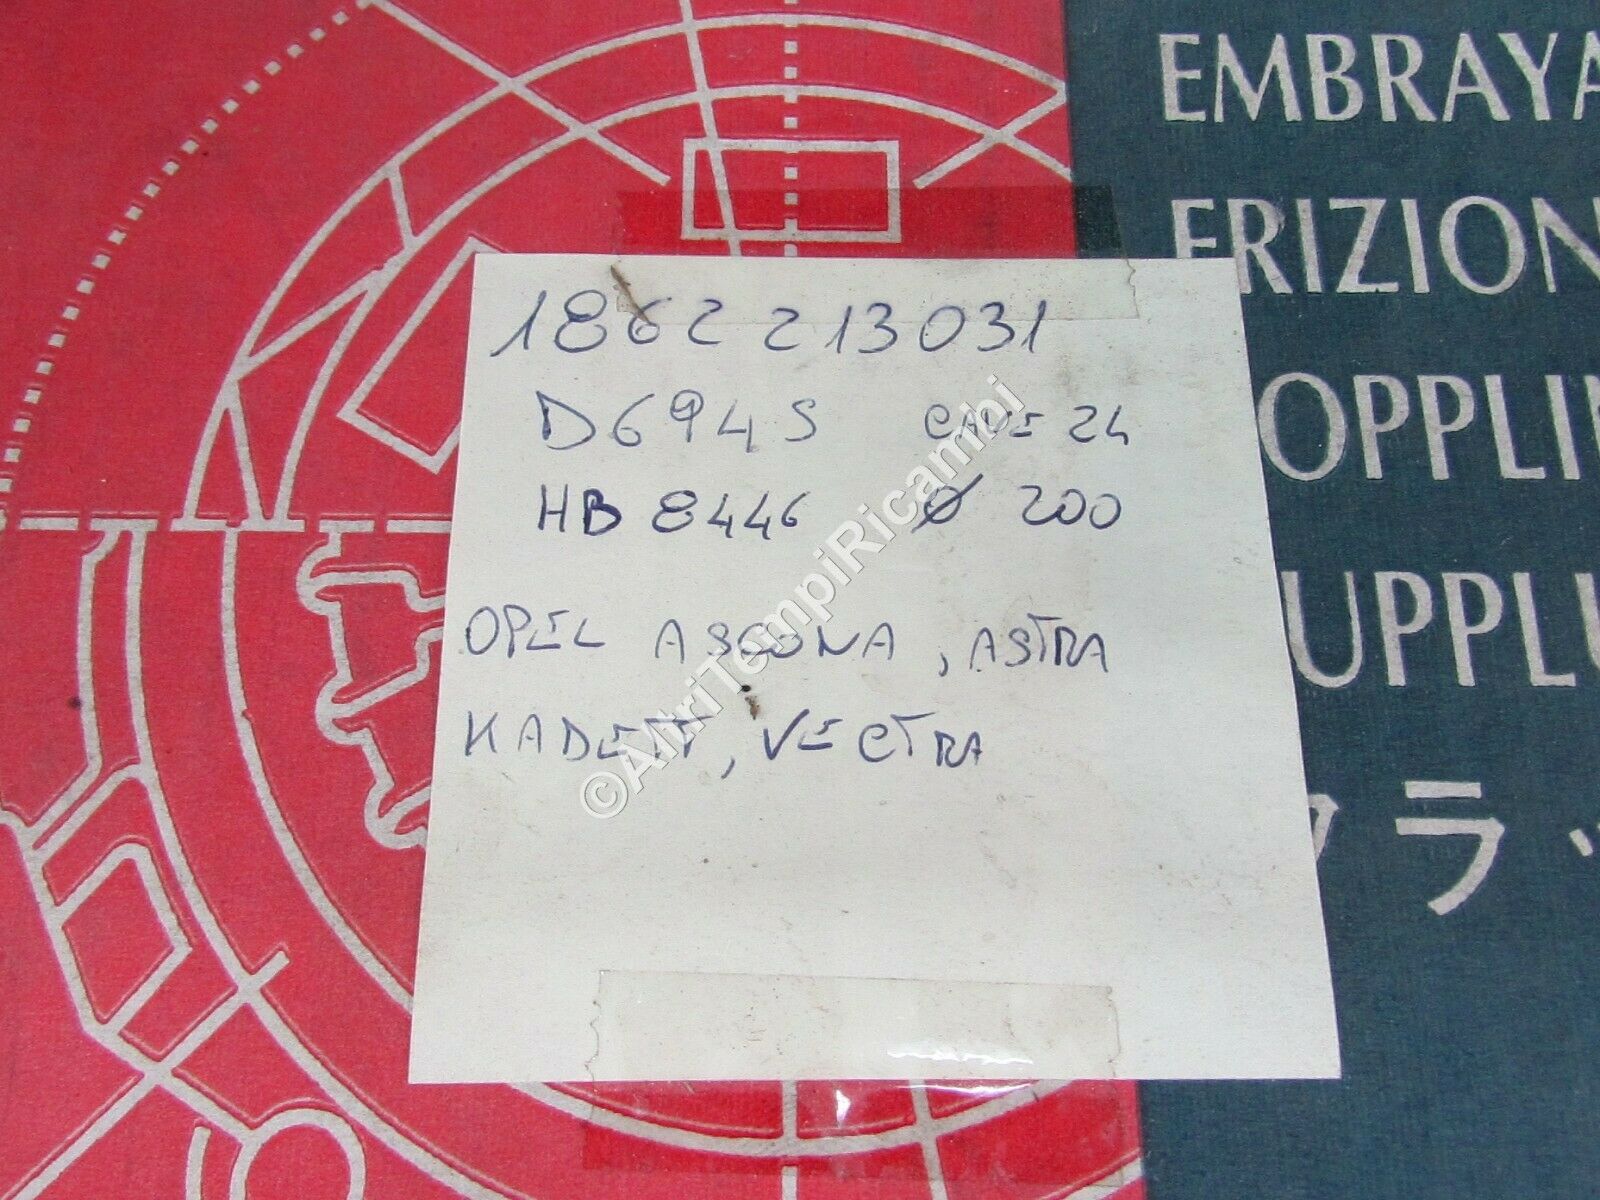 EMBRAYA
FRIZION
OPPLIN
UPPLU
ラッ
1862 213031
D694S CAVE 24
HB 8446 Ø 200
OPEL ASCONA, ASTRA
KADETT, VECTRA
©AltriTempiRicambi